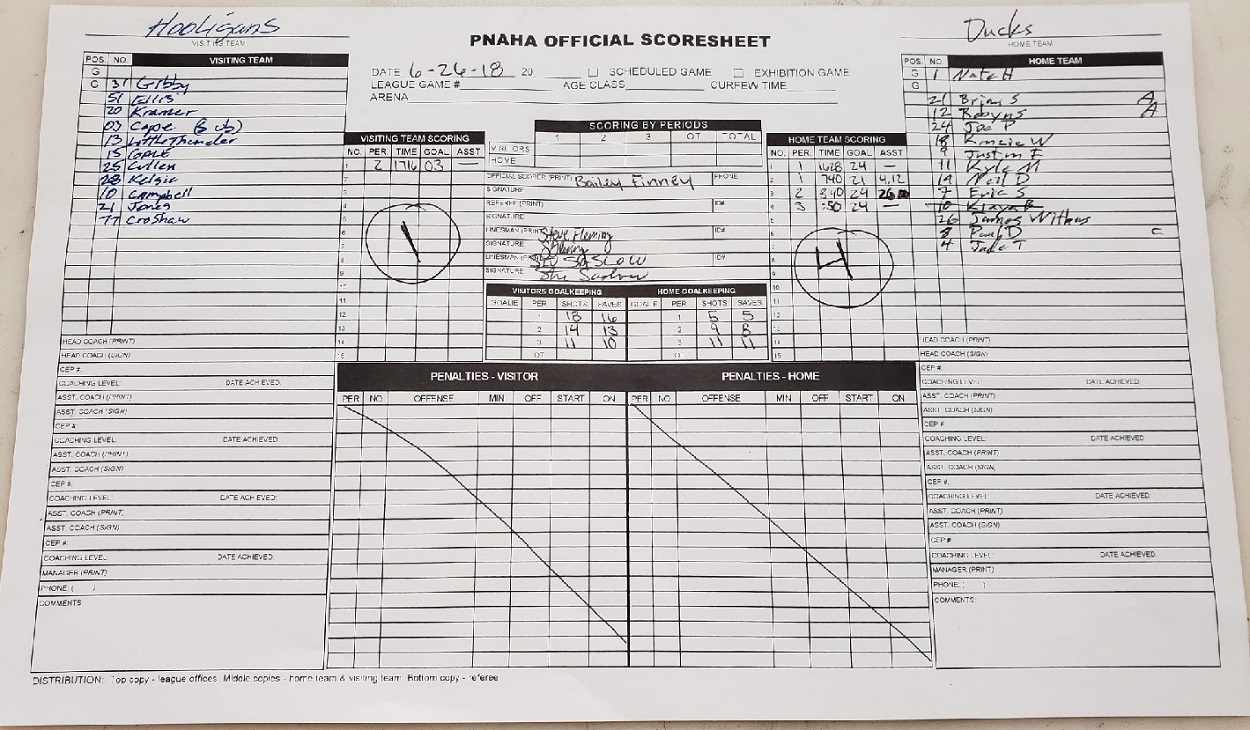 Hooligans
VISITING TEAM
PNAHA OFFICIAL SCORESHEET
Ducks
HOME TEAM
DATE 6-26-18 20 SCHEDULED GAME EXHIBITION GAME
LEAGUE GAME # AGE CLASS CURFEW TIME
ARENA
POS. NO. VISITING TEAM
G
G 31 Gibby
51 Ellis
20 Kramer
03 Cage (Sub)
13 Littlethunder
15
25 Cullen
28 Kelsie
10 Campbell
21 Jones
77 Croshaw
HEAD COACH (PRINT)
HEAD COACH (SIGN)
CEP #:
COACHING LEVEL: DATE ACHIEVED:
ASST. COACH (PRINT)
ASST. COACH (SIGN)
CEP #:
COACHING LEVEL: DATE ACHIEVED
ASST. COACH (PRINT)
ASST. COACH (SIGN)
CEP #:
COACHING LEVEL: DATE ACHIEVED:
ASST. COACH (PRINT)
ASST. COACH (SIGN)
CEP #:
COACHING LEVEL: DATE ACHIEVED:
MANAGER (PRINT)
PHONE: ( )
COMMENTS:
VISITING TEAM SCORING
NO. PER. TIME GOAL ASST
1 2 1716 03 —
2
3
4
5
6
7
8
9
10
11
12
13
14
15
1
SCORING BY PERIODS
1 2 3 OT TOTAL
VISITORS
HOME
OFFICIAL SCORER (PRINT) Bailey Finney PHONE
SIGNATURE
REFEREE (PRINT) ID#
SIGNATURE
LINESMAN (PRINT) Steve Fleming ID#
SIGNATURE
LINESMAN (PRINT) Stu Saslow ID#
SIGNATURE
VISITORS GOALKEEPING HOME GOALKEEPING
GOALIE PER SHOTS SAVES GOALIE PER SHOTS SAVES
1 18 16 1 5 5
2 14 13 2 9 8
3 11 10 3 11 11
OT OT
HOME TEAM SCORING
NO. PER. TIME GOAL ASST
1 1 1628 24 —
2 1 740 21 4,12
3 2 340 24 26
4 3 :50 24 —
5
6
7
8
9
10
11
12
13
14
15
4
PENALTIES - VISITOR PENALTIES - HOME
PER NO OFFENSE MIN OFF START ON PER NO. OFFENSE MIN OFF START ON
POS. NO. HOME TEAM
G 1 Nate H
G
21 Brian S A
12 Robyn S A
24 Joe P
18 Kenzie W
9 Justin F
11 Kyle M
14 Neil D
7 Eric S
10
26 James Withus
8 Paul D C
4 Jake T
HEAD COACH (PRINT)
HEAD COACH (SIGN)
CEP #:
COACHING LEVEL: DATE ACHIEVED:
ASST. COACH (PRINT)
ASST. COACH (SIGN)
CEP #:
COACHING LEVEL: DATE ACHIEVED
ASST. COACH (PRINT)
ASST. COACH (SIGN)
CEP #:
COACHING LEVEL: DATE ACHIEVED:
ASST. COACH (PRINT)
ASST. COACH (SIGN)
CEP #
COACHING LEVEL: DATE ACHIEVED:
MANAGER (PRINT)
PHONE: ( )
COMMENTS:
DISTRIBUTION: Top copy - league offices Middle copies - home team & visiting team Bottom copy - referee